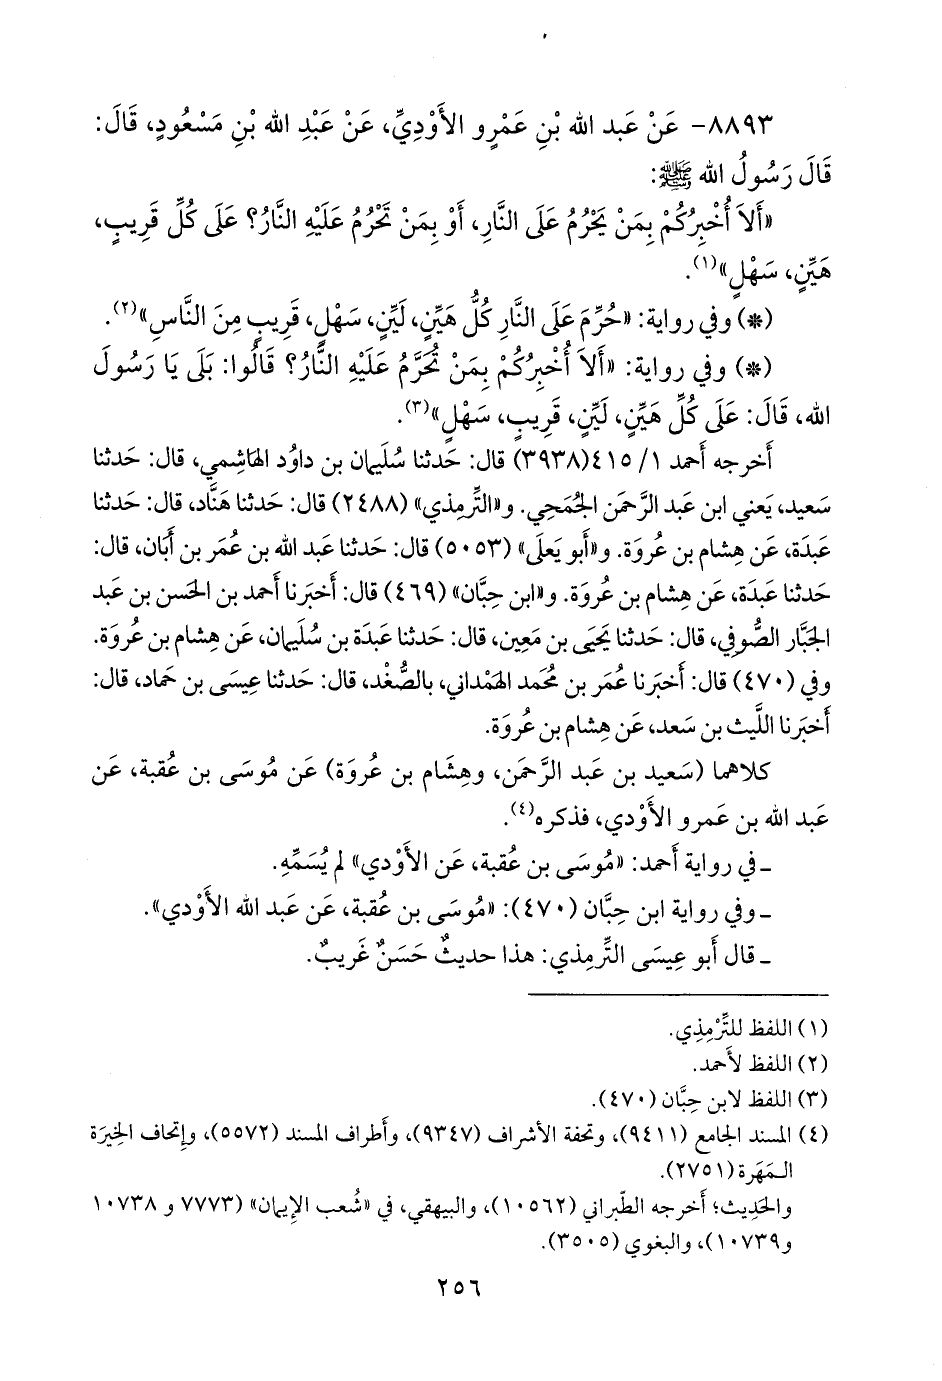 ٨٨٩٣- عَنْ عَبد الله بْنِ عَمْرٍو الأَوْدِيِّ، عَنْ عَبْدِ الله بْنِ مَسْعُودٍ، قَالَ:
قَالَ رَسُولُ الله ﷺ:
«أَلاَ أُخْبِرُكُمْ بِمَنْ يَحْرُمُ عَلَى النَّارِ، أَوْ بِمَنْ تَحْرُمُ عَلَيْهِ النَّارُ؟ عَلَى كُلِّ قَرِيبٍ،
هَيِّنٍ، سَهْلٍ»(١).
(*) وفي رواية: «حُرِّمَ عَلَى النَّارِ كُلُّ هَيِّنٍ، لَيِّنٍ، سَهْلٍ، قَرِيبٍ مِنَ النَّاسِ»(٢).
(*) وفي رواية: «أَلاَ أُخْبِرُكُمْ بِمَنْ تُحَرَّمُ عَلَيْهِ النَّارُ؟ قَالُوا: بَلَى يَا رَسُولَ
الله، قَالَ: عَلَى كُلِّ هَيِّنٍ، لَيِّنٍ، قَرِيبٍ، سَهْلٍ»(٣).
أَخرجه أَحمد ١/ ٤١٥(٣٩٣٨) قال: حَدثنا سُليمان بن داوُد الهاشمي، قال: حَدثنا
سَعيد، يَعني ابن عَبد الرَّحمَن الجُمَحي. و«التِّرمِذي» (٢٤٨٨) قال: حَدثنا هَنَّاد، قال: حَدثنا
عَبدَة، عَن هِشام بن عُروَة. و«أَبو يَعلَى» (٥٠٥٣) قال: حَدثنا عَبد الله بن عُمَر بن أَبَان، قال:
حَدثنا عَبدَة، عَن هِشام بن عُروَة. و«ابن حِبَّان» (٤٦٩) قال: أَخبَرنا أَحمد بن الحَسن بن عَبد
الجَبَّار الصُّوفي، قال: حَدثنا يَحيَى بن مَعِين، قال: حَدثنا عَبدَة بن سُليمان، عَن هِشام بن عُروَة.
وفي (٤٧٠) قال: أَخبَرنا عُمَر بن مُحمد الهَمْداني، بالصُّغْد، قال: حَدثنا عِيسَى بن حَماد، قال:
أَخبَرنا اللَّيث بن سَعد، عَن هِشام بن عُروَة.
كلاهما (سَعيد بن عَبد الرَّحمَن، وهِشَام بن عُروَة) عَن مُوسَى بن عُقبة، عَن
عَبد الله بن عَمرو الأَوْدي، فذكره(٤).
ـ في رواية أَحمد: «مُوسَى بن عُقبة، عَن الأَوْدي» لم يُسَمِّهِ.
ـ وفي رواية ابن حِبَّان (٤٧٠): «مُوسَى بن عُقبة، عَن عَبد الله الأَوْدي».
ـ قال أَبو عِيسَى التِّرمِذي: هذا حديثٌ حَسَنٌ غَريبٌ.
(١) اللفظ للتِّرْمِذِي.
(٢) اللفظ لأَحمد.
(٣) اللفظ لابن حِبَّان (٤٧٠).
(٤) المسند الجامع (٩٤١١)، وتحفة الأشراف (٩٣٤٧)، وأَطراف المسند (٥٥٧٢)، وإِتحاف الخِيرَة
المَهَرة (٢٧٥١).
والحَدِيث؛ أَخرجه الطَّبراني (١٠٥٦٢)، والبيهقي، في «شُعب الإِيمان» (٧٧٧٣ و ١٠٧٣٨
و١٠٧٣٩)، والبغوي (٣٥٠٥).
٢٥٦